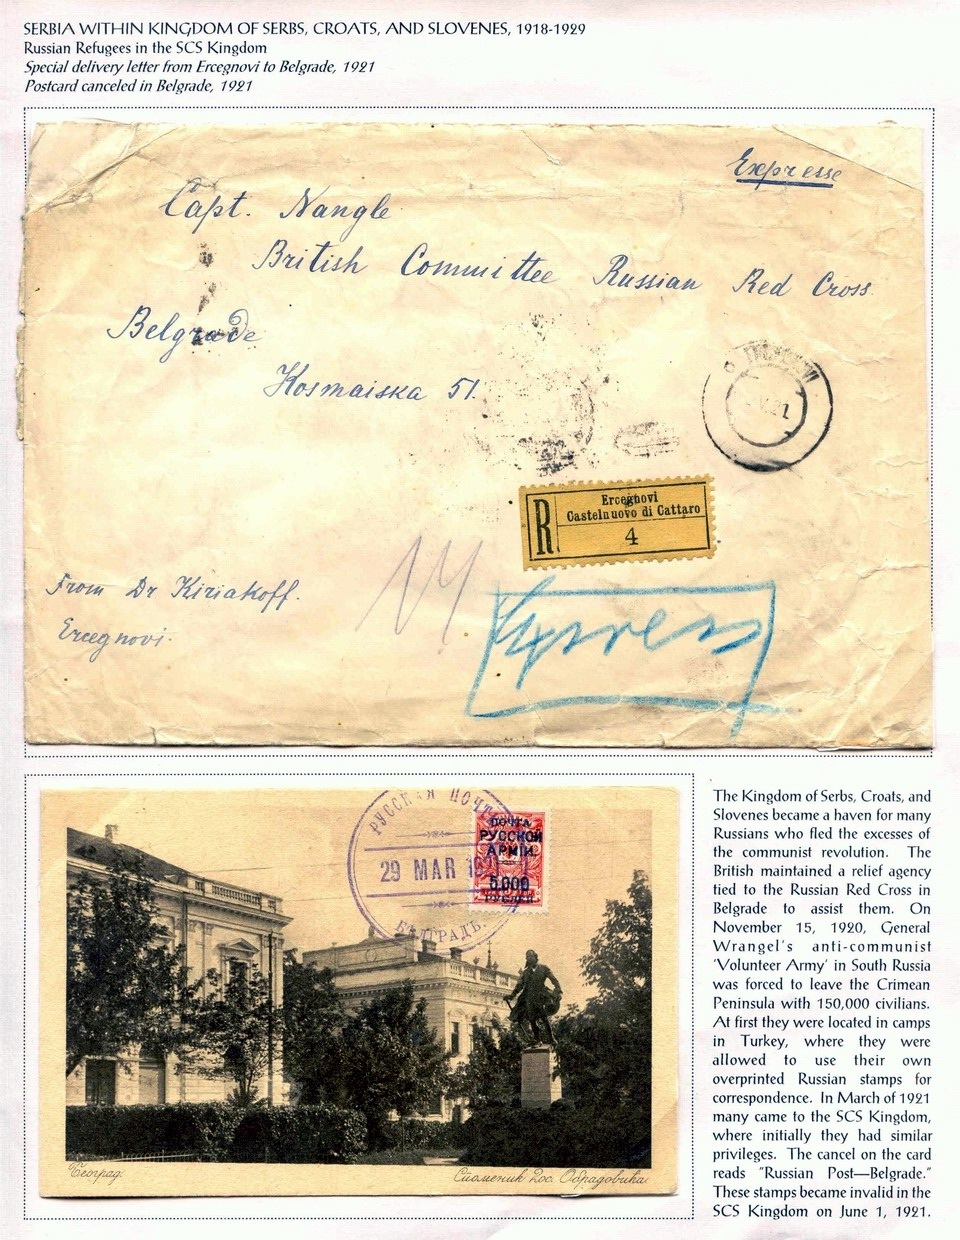 SERBIA WITHIN KINGDOM OF SERBS, CROATS, AND SLOVENES, 1918-1929
Russian Refugees in the SCS Kingdom
Special delivery letter from Ercegnovi to Belgrade, 1921
Postcard canceled in Belgrade, 1921
Expresse
Capt. Nangle
British Committee Russian Red Cross
Belgrade
Kosmaiska 51.
R
Ercegnovi
Castelnuovo di Cattaro
4
From Dr Kiriakoff.
Ercegnovi.
Express
РУССКАЯ ПОЧТА
29 MAR 1921
БѢЛГРАДЪ.
ПОЧТА
РУССКОЙ
АРМІИ
5.000
РУБЛЕЙ
Београд.
Споменик Дос. Обрадовића.
The Kingdom of Serbs, Croats, and
Slovenes became a haven for many
Russians who fled the excesses of
the communist revolution. The
British maintained a relief agency
tied to the Russian Red Cross in
Belgrade to assist them. On
November 15, 1920, General
Wrangel's anti-communist
'Volunteer Army' in South Russia
was forced to leave the Crimean
Peninsula with 150,000 civilians.
At first they were located in camps
in Turkey, where they were
allowed to use their own
overprinted Russian stamps for
correspondence. In March of 1921
many came to the SCS Kingdom,
where initially they had similar
privileges. The cancel on the card
reads "Russian Post—Belgrade."
These stamps became invalid in the
SCS Kingdom on June 1, 1921.